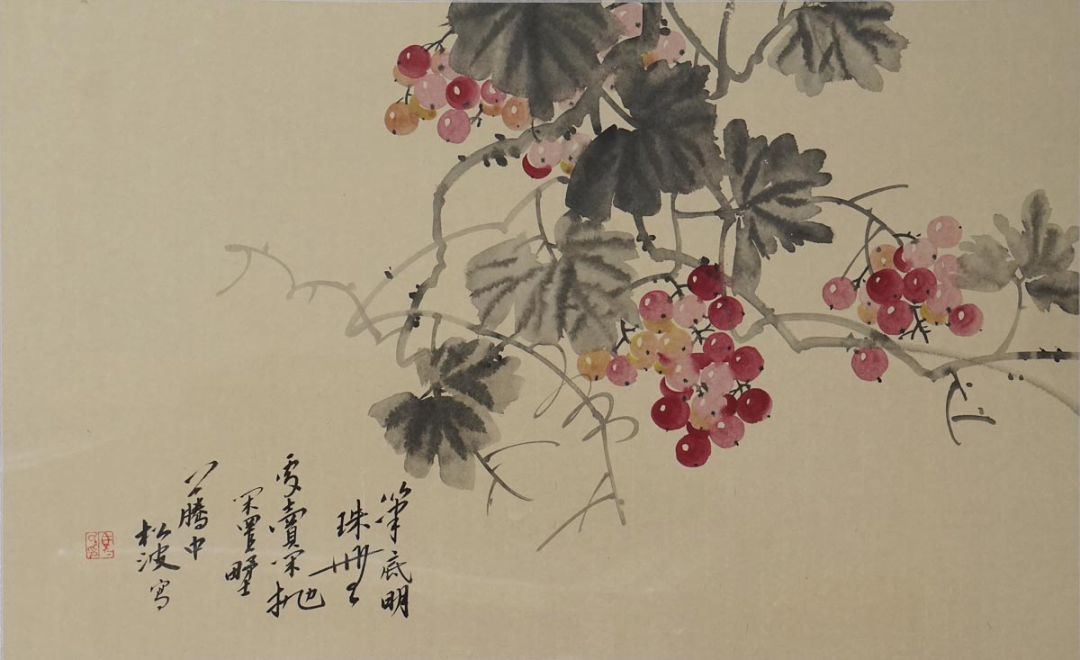 筆底明
珠無
處賣閑抛
閑置野
藤中
松波寫